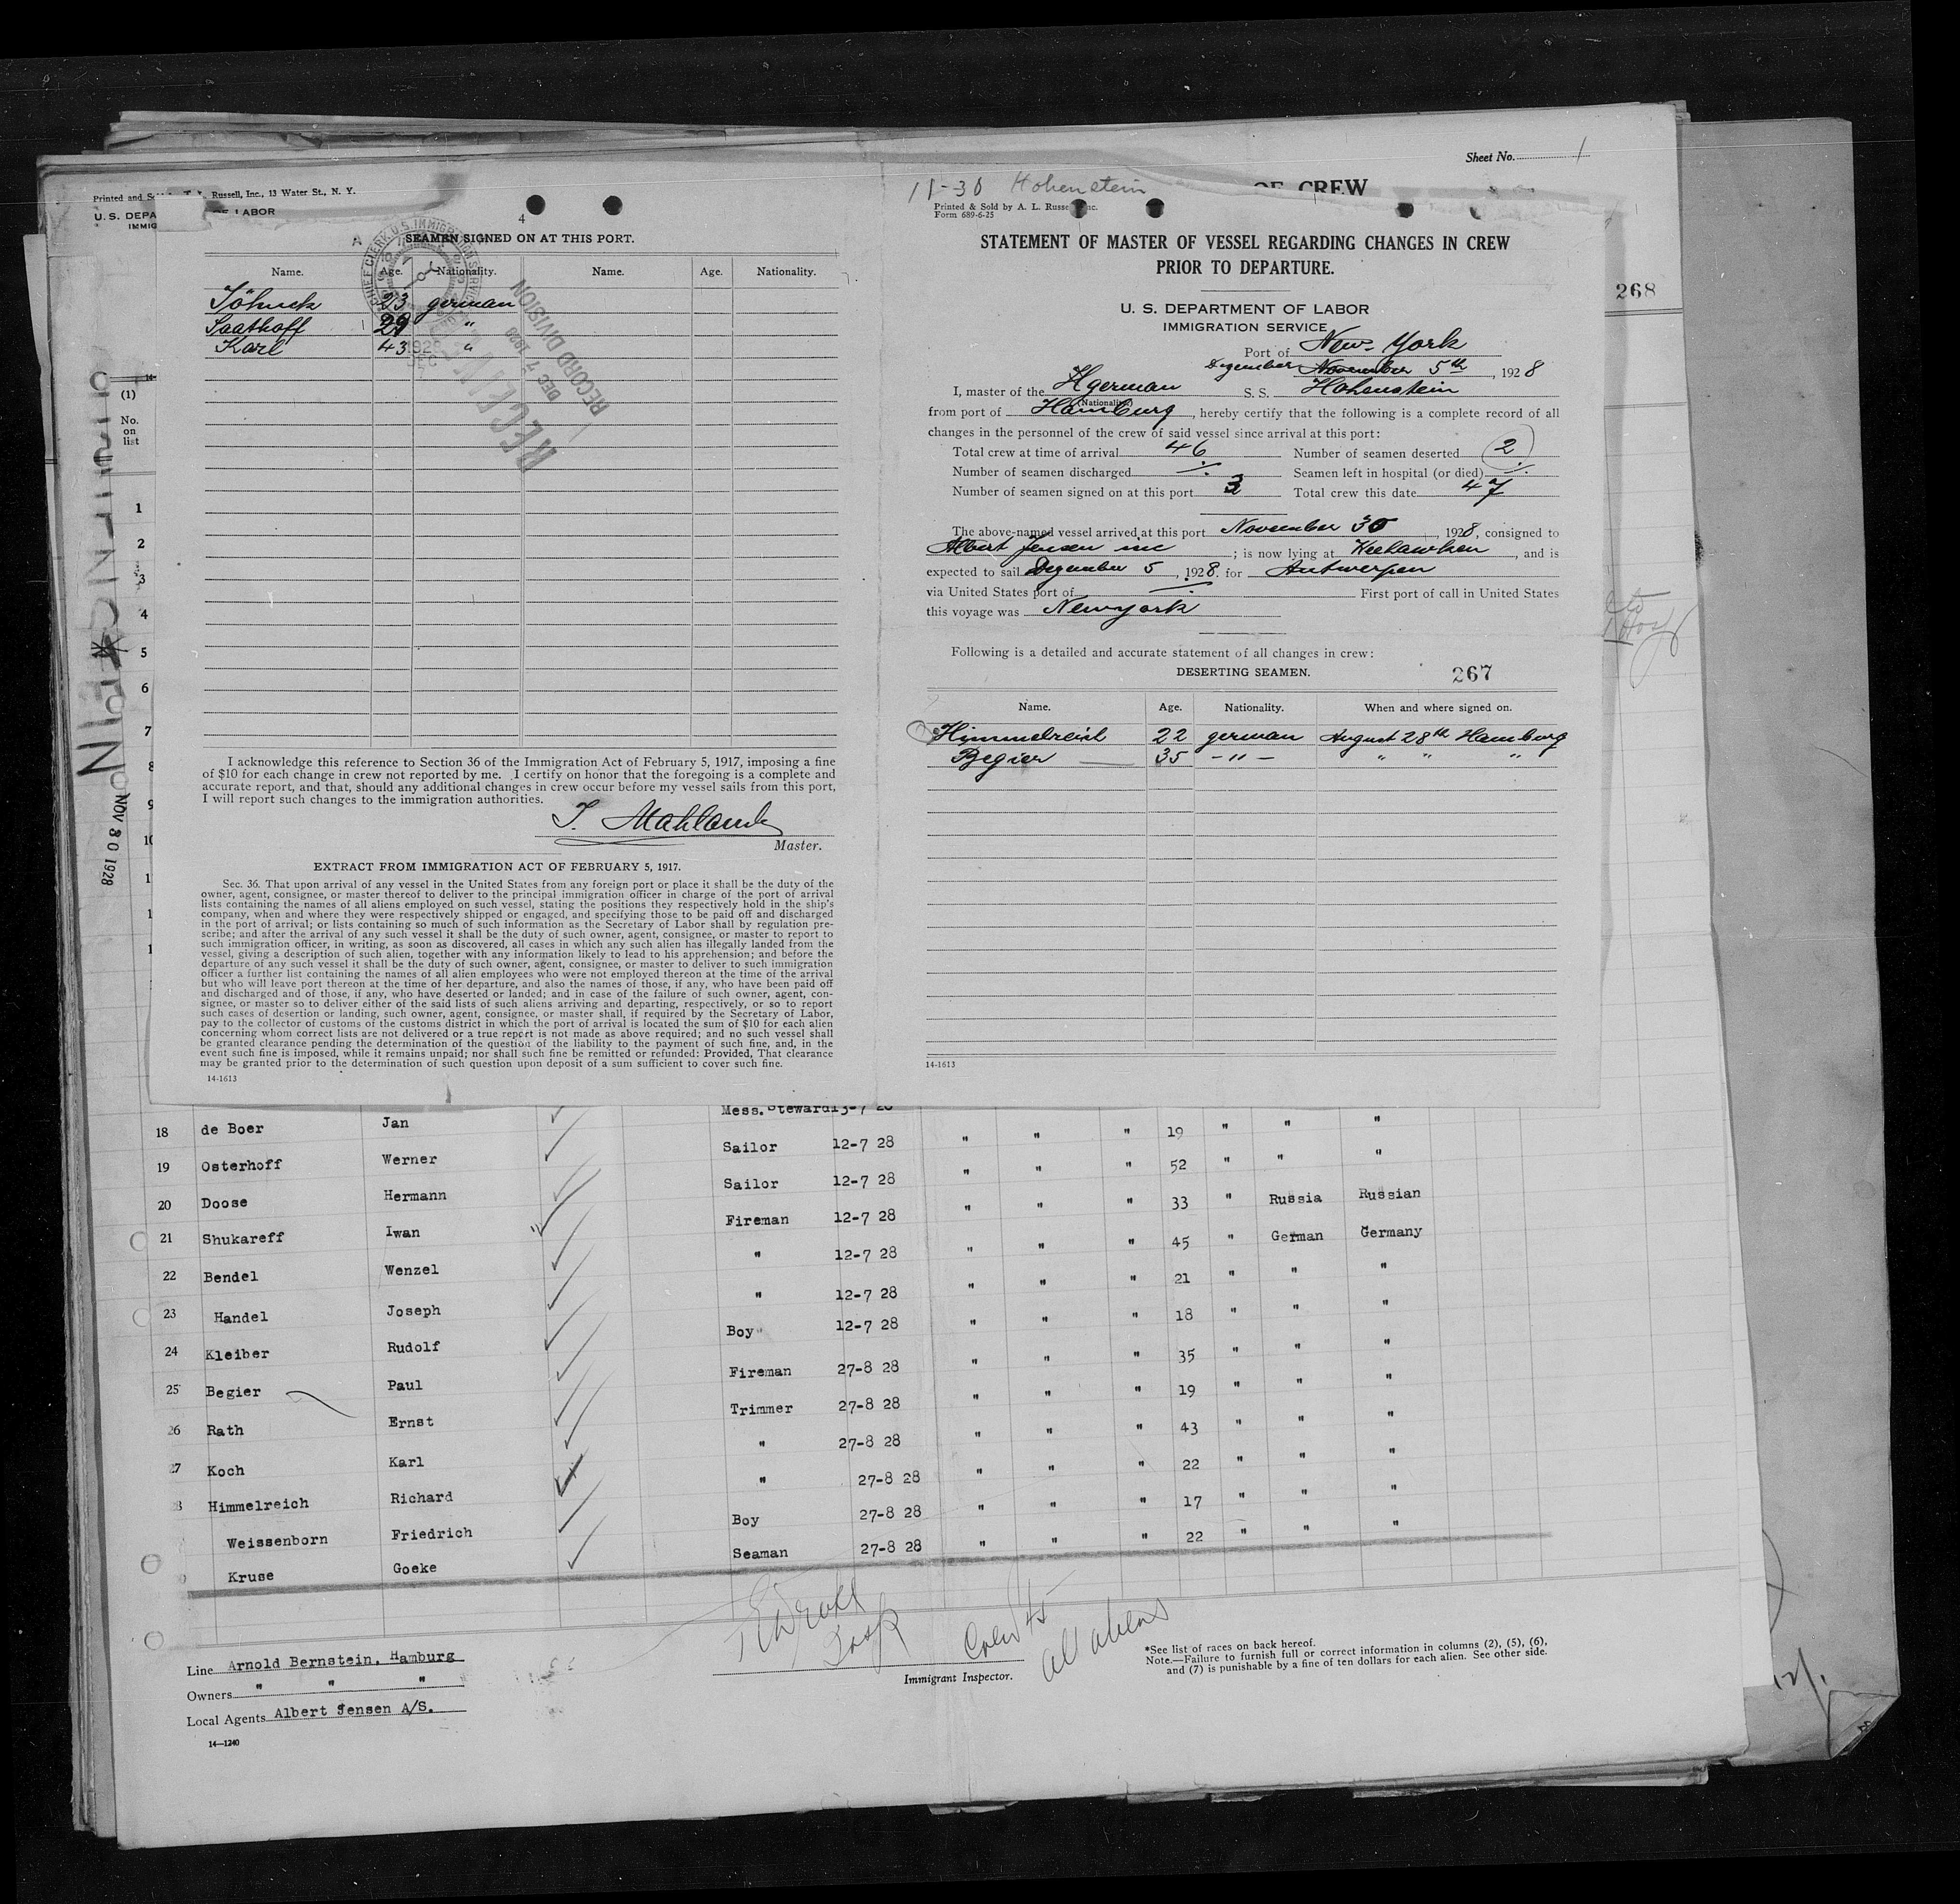 Sheet No. 1
Printed and So Russell, Inc., 13 Water St., N. Y.
U. S. DEPA OF LABOR
IMMIG
4
SEAMEN SIGNED ON AT THIS PORT.
Name. Age. Nationality. Name. Age. Nationality.
Töhuck 23 german
Saathoff 29 "
Karl 43 "
CHIEF CLERK U.S. IMMIGRATION SERVICE
RECEIVED
DEC 7 1928
RECORD DIVISION
I acknowledge this reference to Section 36 of the Immigration Act of February 5, 1917, imposing a fine
of $10 for each change in crew not reported by me. I certify on honor that the foregoing is a complete and
accurate report, and that, should any additional changes in crew occur before my vessel sails from this port,
I will report such changes to the immigration authorities.
Master.
EXTRACT FROM IMMIGRATION ACT OF FEBRUARY 5, 1917.
Sec. 36. That upon arrival of any vessel in the United States from any foreign port or place it shall be the duty of the
owner, agent, consignee, or master thereof to deliver to the principal immigration officer in charge of the port of arrival
lists containing the names of all aliens employed on such vessel, stating the positions they respectively hold in the ship's
company, when and where they were respectively shipped or engaged, and specifying those to be paid off and discharged
in the port of arrival; or lists containing so much of such information as the Secretary of Labor shall by regulation pre-
scribe; and after the arrival of any such vessel it shall be the duty of such owner, agent, consignee, or master to report to
such immigration officer, in writing, as soon as discovered, all cases in which any such alien has illegally landed from the
vessel, giving a description of such alien, together with any information likely to lead to his apprehension; and before the
departure of any such vessel it shall be the duty of such owner, agent, consignee, or master to deliver to such immigration
officer a further list containing the names of all alien employees who were not employed thereon at the time of the arrival
but who will leave port thereon at the time of her departure, and also the names of those, if any, who have been paid off
and discharged and of those, if any, who have deserted or landed; and in case of the failure of such owner, agent, con-
signee, or master so to deliver either of the said lists of such aliens arriving and departing, respectively, or so to report
such cases of desertion or landing, such owner, agent, consignee, or master shall, if required by the Secretary of Labor,
pay to the collector of customs of the customs district in which the port of arrival is located the sum of $10 for each alien
concerning whom correct lists are not delivered or a true report is not made as above required; and no such vessel shall
be granted clearance pending the determination of the question of the liability to the payment of such fine, and, in the
event such fine is imposed, while it remains unpaid; nor shall such fine be remitted or refunded: Provided, That clearance
may be granted prior to the determination of such question upon deposit of a sum sufficient to cover such fine.
14-1613
11-30 Hohenstein
OF CREW
Printed & Sold by A. L. Russe nc.
Form 689-6-25
STATEMENT OF MASTER OF VESSEL REGARDING CHANGES IN CREW
PRIOR TO DEPARTURE.
U. S. DEPARTMENT OF LABOR
IMMIGRATION SERVICE
Port of New-York
Dezember November 5th, 1928
I, master of the german S. S. Hohenstein
(Nationality)
from port of Hamburg, hereby certify that the following is a complete record of all
changes in the personnel of the crew of said vessel since arrival at this port:
Total crew at time of arrival 46 Number of seamen deserted 2
Number of seamen discharged ·/· Seamen left in hospital (or died) ·/·
Number of seamen signed on at this port 3 Total crew this date 47
The above-named vessel arrived at this port November 30, 1928, consigned to
Albert Jensen inc; is now lying at Weehawken, and is
expected to sail Dezember 5, 1928. for Antwerpen
via United States port of ·/· First port of call in United States
this voyage was Newyork
Following is a detailed and accurate statement of all changes in crew:
DESERTING SEAMEN. 267
Name. Age. Nationality. When and where signed on.
Himmelreich 22 german August 28th Hamburg
Begier 35 -"- " " "
14-1613
268
(1)
No.
on
list
1
2
3
4
5
6
7
8
9
10
NOV 30 1928
Mess. Steward 13-7 28
18 de Boer Jan Sailor 12-7 28 " " " 19 " " "
19 Osterhoff Werner Sailor 12-7 28 " " " 52 " " "
20 Doose Hermann Fireman 12-7 28 " " " 33 " Russia Russian
21 Shukareff Iwan " 12-7 28 " " " 45 " German Germany
22 Bendel Wenzel " 12-7 28 " " " 21 " " "
23 Handel Joseph Boy 12-7 28 " " " 18 " " "
24 Kleiber Rudolf Fireman 27-8 28 " " " 35 " " "
25 Begier Paul Trimmer 27-8 28 " " " 19 " " "
26 Rath Ernst " 27-8 28 " " " 43 " " "
27 Koch Karl " 27-8 28 " " " 22 " " "
Himmelreich Richard Boy 27-8 28 " " " 17 " " "
Weissenborn Friedrich Seaman 27-8 28 " " " 22 " " "
Kruse Goeke
Crew 45
all aliens
Line Arnold Bernstein, Hamburg
Owners " " "
Local Agents Albert Jensen A/S.
14—1240
Immigrant Inspector.
*See list of races on back hereof.
Note.—Failure to furnish full or correct information in columns (2), (5), (6),
and (7) is punishable by a fine of ten dollars for each alien. See other side.